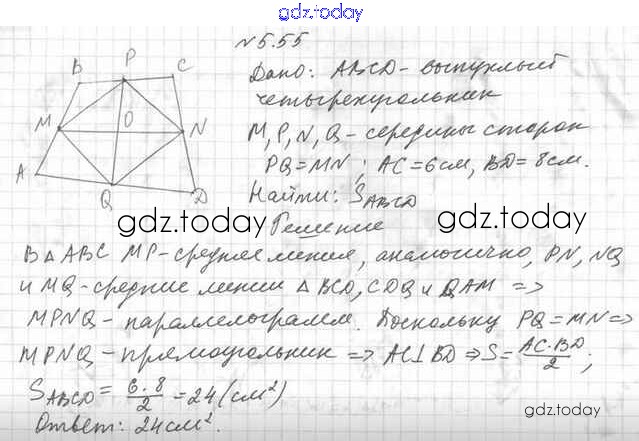 gdz.today
N 5.55
B P C
M O N
A Q D
Дано: ABCD - выпуклый
четырехугольник
M, P, N, Q - середины сторон
PQ = MN; AC = 6 см, BD = 8 см.
Найти: S_ABCD
gdz.today gdz.today
Решение
В △ ABC MP - средняя линия, аналогично, PN, NQ
и MQ - средние линии △ BCD, CDQ и QAM =>
MPNQ - параллелограмм. Поскольку PQ = MN =>
MPNQ - прямоугольник => AC ⊥ BD => S = AC·BD/2;
S_ABCD = 6·8/2 = 24 (см²)
Ответ: 24 см².
gdz.today